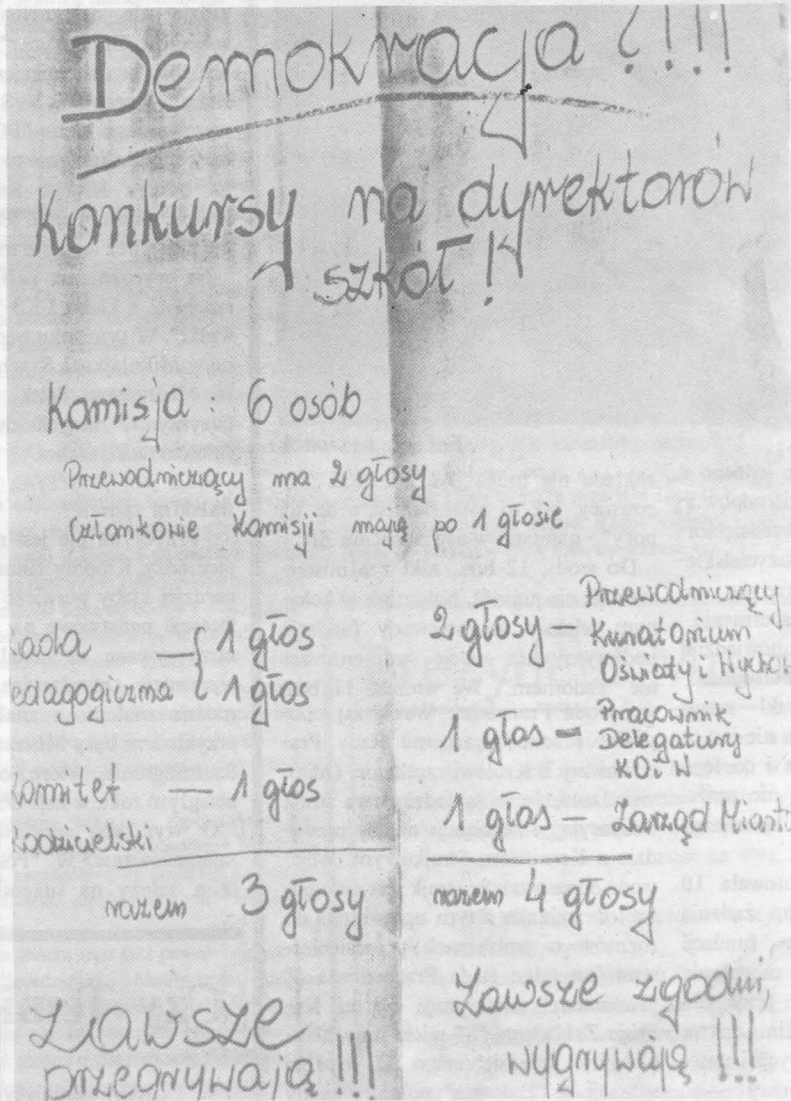 Demokracja?!!!
Konkursy na dyrektorów
szkół!
Komisja: 6 osób
Przewodniczący ma 2 głosy
Członkowie Komisji mają po 1 głosie
Rada — { 1 głos
edagogiczna 1 głos
Komitet — 1 głos
Rodzicielski
razem 3 głosy
Zawsze
przegrywają!!!
2 głosy — Przewodniczący
Kuratorium
Oświaty i Wychow
1 głos — Pracownik
Delegatury
KOiW
1 głos — Zarząd Miasta
razem 4 głosy
Zawsze zgodni,
wygrywają!!!